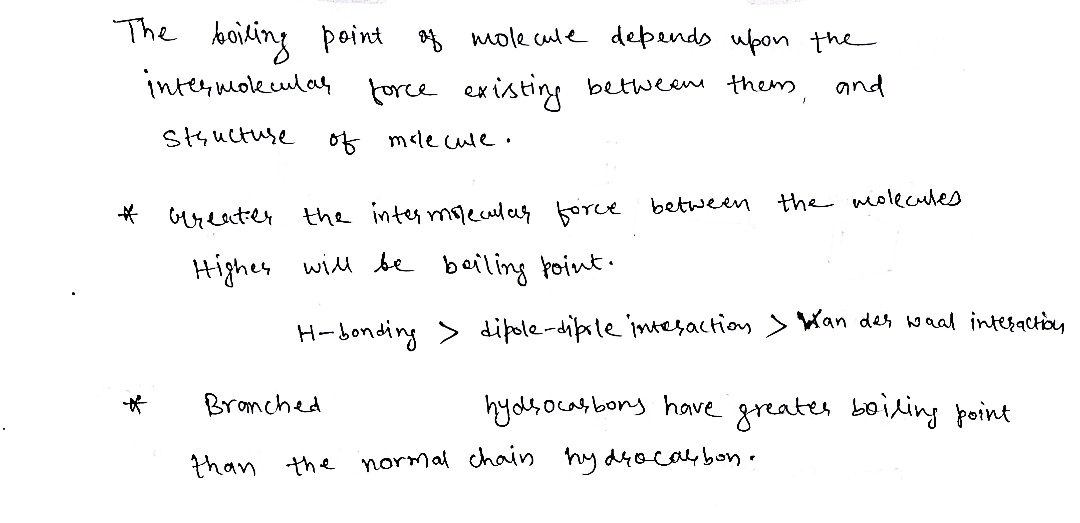 The boiling point of molecule depends upon the
intermolecular force existing between them, and
structure of molecule.
* Greater the intermolecular force between the molecules
Higher will be boiling point.
H-bonding > dipole-dipole interaction > Van der waal interaction
* Branched hydrocarbons have greater boiling point
than the normal chain hydrocarbon.